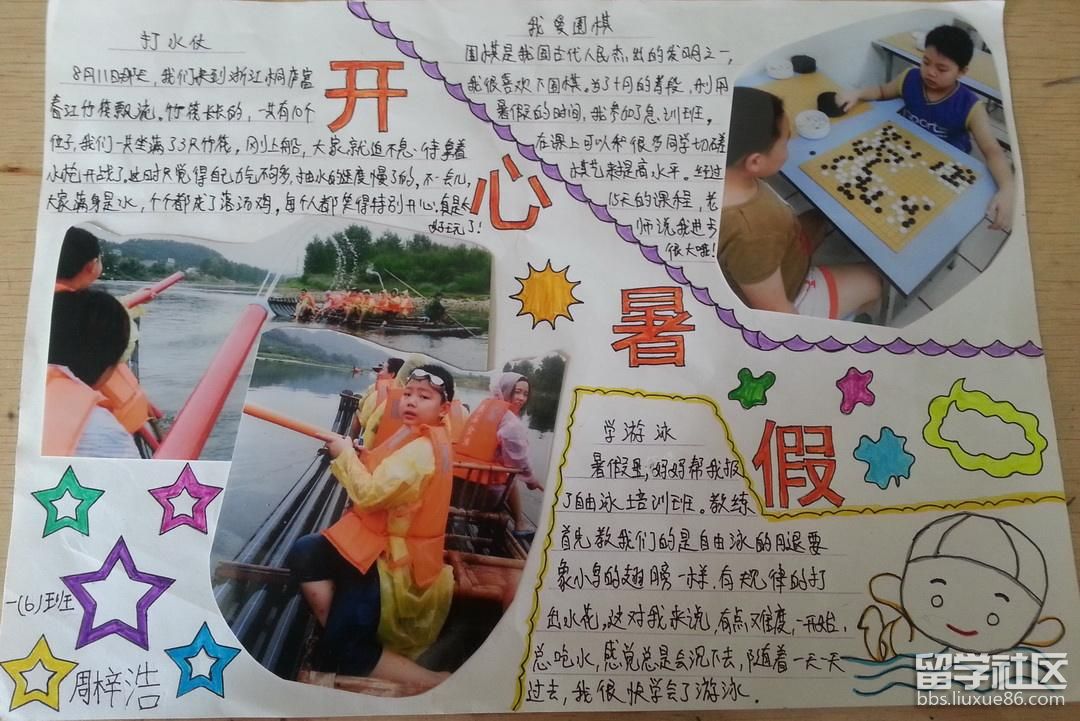 打水仗
8月11日那天，我们来到浙江桐庐富
春江竹筏飘流。竹筏长长的，一共有10个
位子，我们一共坐满了3只竹筏，刚上船，大家就迫不急待拿着
水炮开战了。这时只觉得自己力气不够多，抽水的速度慢了的。不一会儿，
大家满身是水，个个都成了落汤鸡，每个人都笑得特别开心，真是太
好玩了！
我爱围棋
围棋是我国古代人民杰出的发明之一，
我很喜欢下围棋。为了十月的考段，利用
暑假的时间，我参加了急训班。
在课上可以和很多同学切磋
棋艺来提高水平。经过
15天的课程，老
师说我进步
很大哦！
开
心
暑
假
学游泳
暑假里，好好帮我报
了自由泳培训班。教练
首先教我们的是自由泳的用腿要
象小鸟的翅膀一样，有规律的打
出水花，这对我来说，有点难度，一开始，
总吃水，感觉总是会沉下去，随着一天一天
过去，我很快学会了游泳．
一(6)班
周梓浩
留学社区
bbs.liuxue86.com